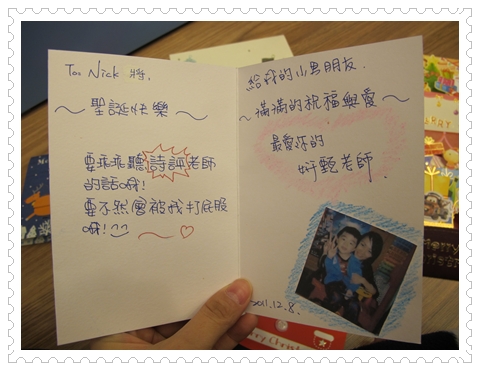 To: Nick 將.
～聖誕快樂～
要乖乖聽詩評老師
的話哦!
要不然會被我打屁股
呀!
給我的小男朋友.
～滿滿的祝福與愛～
最愛你的
妤甄老師.
2011.12.8.